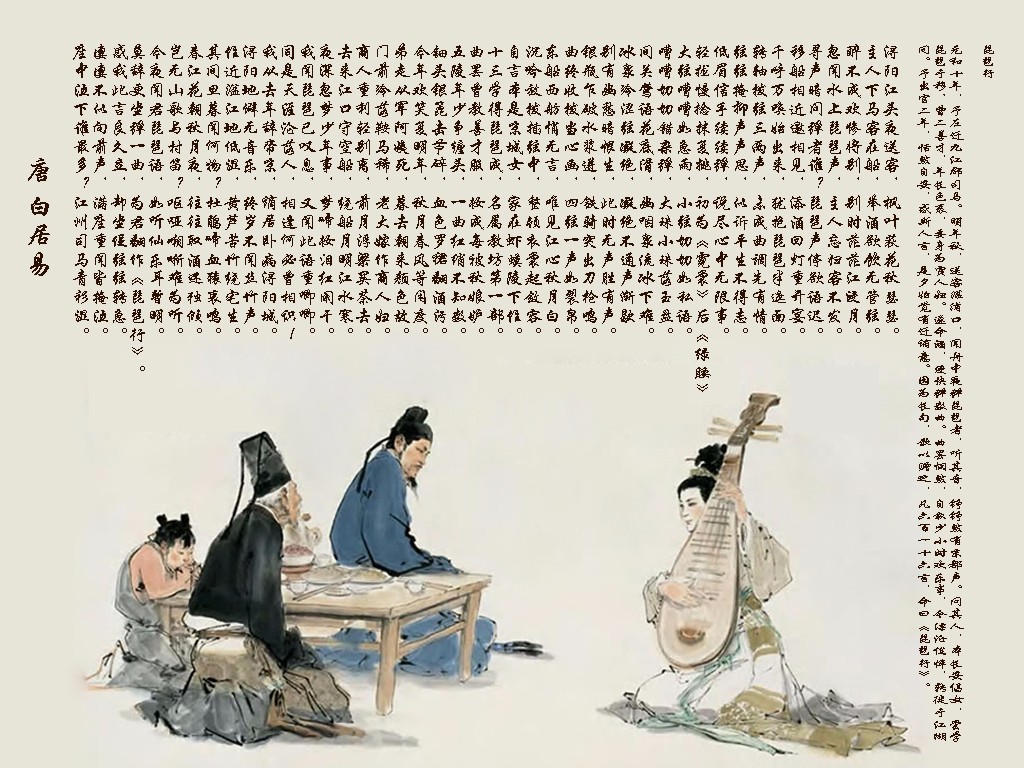 琵琶行
元和十年，予左迁九江郡司马。明年秋，送客湓浦口，闻舟中夜弹琵琶者，听其音，铮铮然有京都声。问其人，本长安倡女，尝学
琵琶于穆、曹二善才，年长色衰，委身为贾人妇。遂命酒，使快弹数曲。曲罢悯然，自叙少小时欢乐事，今漂沦憔悴，转徙于江湖
间。予出官二年，恬然自安，感斯人言，是夕始觉有迁谪意。因为长句，歌以赠之，凡六百一十六言，命曰《琵琶行》。
浔阳江头夜送客，枫叶荻花秋瑟瑟。
主人下马客在船，举酒欲饮无管弦。
醉不成欢惨将别，别时茫茫江浸月。
忽闻水上琵琶声，主人忘归客不发。
寻声暗问弹者谁？琵琶声停欲语迟。
移船相近邀相见，添酒回灯重开宴。
千呼万唤始出来，犹抱琵琶半遮面。
转轴拨弦三两声，未成曲调先有情。
弦弦掩抑声声思，似诉平生不得志。
低眉信手续续弹，说尽心中无限事。
轻拢慢捻抹复挑，初为《霓裳》后《绿腰》。
大弦嘈嘈如急雨，小弦切切如私语。
嘈嘈切切错杂弹，大珠小珠落玉盘。
间关莺语花底滑，幽咽泉流冰下难。
冰泉冷涩弦凝绝，凝绝不通声渐歇。
别有幽愁暗恨生，此时无声胜有声。
银瓶乍破水浆迸，铁骑突出刀枪鸣。
曲终收拨当心画，四弦一声如裂帛。
东船西舫悄无言，唯见江心秋月白。
沉吟放拨插弦中，整顿衣裳起敛容。
自言本是京城女，家在虾蟆陵下住。
十三学得琵琶成，名属教坊第一部。
曲罢曾教善才服，妆成每被秋娘妒。
五陵年少争缠头，一曲红绡不知数。
钿头银篦击节碎，血色罗裙翻酒污。
今年欢笑复明年，秋月春风等闲度。
弟走从军阿姨死，暮去朝来颜色故。
门前冷落鞍马稀，老大嫁作商人妇。
商人重利轻别离，前月浮梁买茶去。
去来江口守空船，绕船月明江水寒。
夜深忽梦少年事，梦啼妆泪红阑干。
我闻琵琶已叹息，又闻此语重唧唧。
同是天涯沦落人，相逢何必曾相识！
我从去年辞帝京，谪居卧病浔阳城。
浔阳地僻无音乐，终岁不闻丝竹声。
住近湓江地低湿，黄芦苦竹绕宅生。
其间旦暮闻何物？杜鹃啼血猿哀鸣。
春江花朝秋月夜，往往取酒还独倾。
岂无山歌与村笛？呕哑嘲哳难为听。
今夜闻君琵琶语，如听仙乐耳暂明。
莫辞更坐弹一曲，为君翻作《琵琶行》。
感我此言良久立，却坐促弦弦转急。
凄凄不似向前声，满座重闻皆掩泣。
座中泣下谁最多？江州司马青衫湿。
唐 白居易